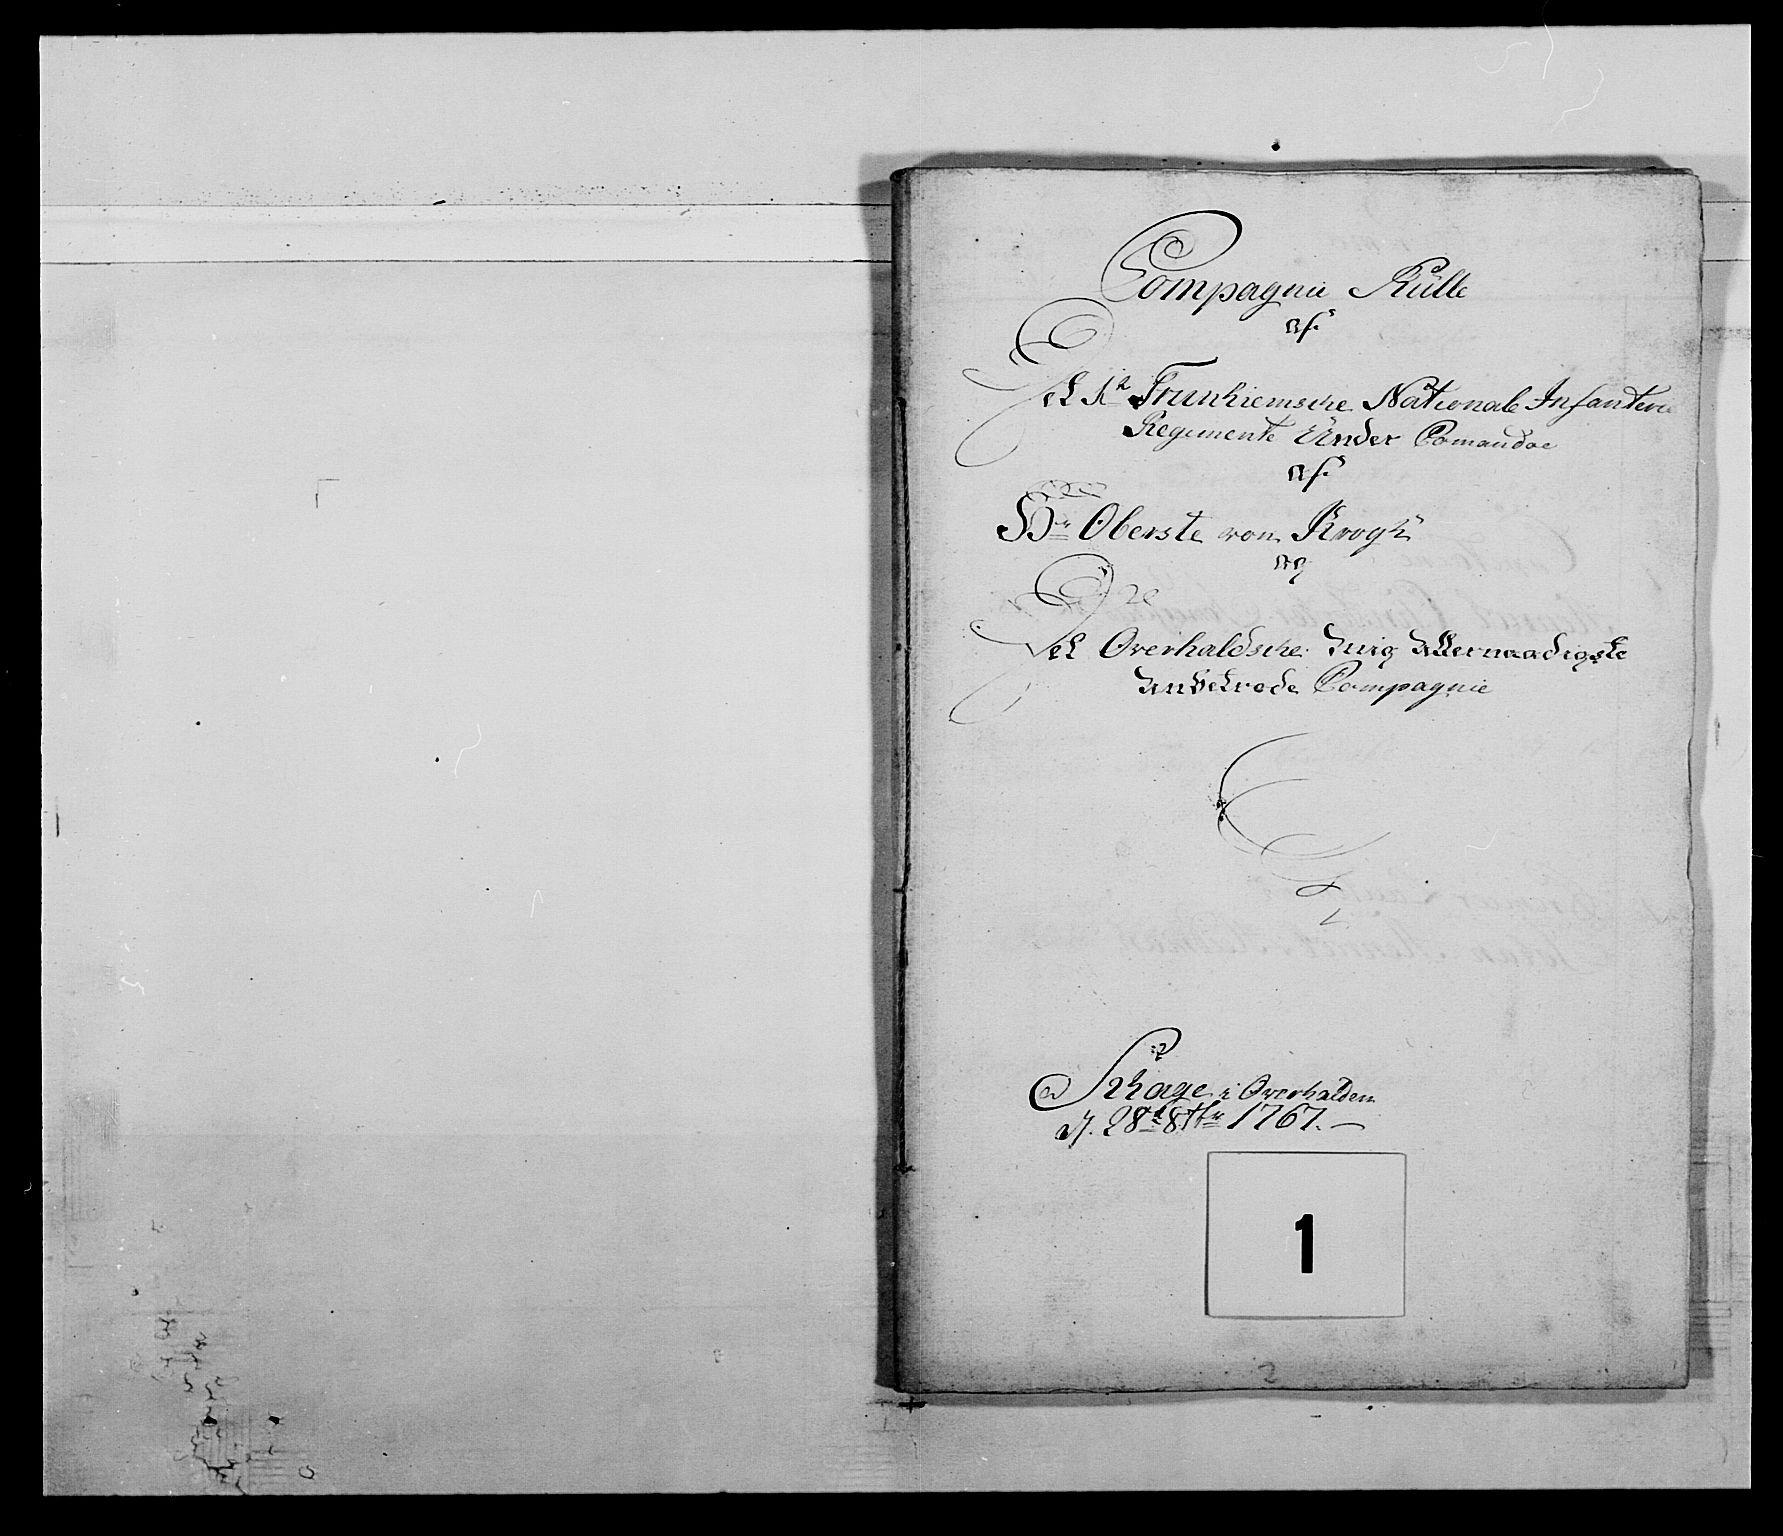 Compagnie Rülle
af
Det 1te Trunhiemsche Nationale Infanterie
Regimente Under Comandoe
af
Hr Oberste von Krogh
og
Det Overhaldsche mig allernaadigste
anbetroede Compagnie
Schage i Overhalden
d. 28de 8tbr 1767.
1